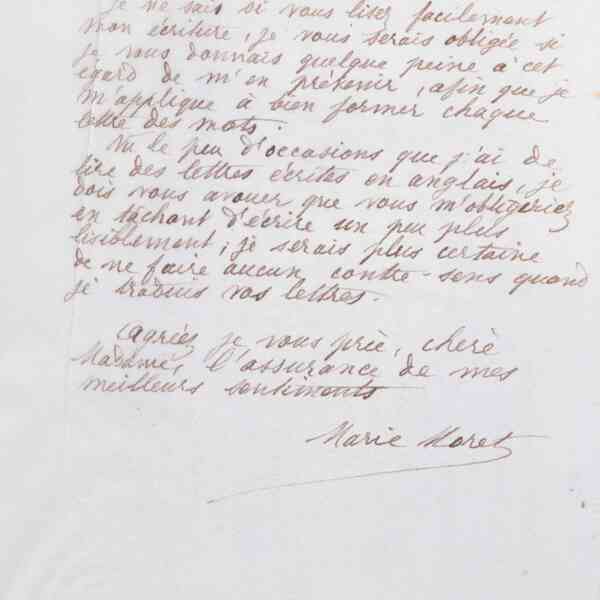 je ne sais si vous lisez facilement
mon écriture, je vous serais obligée si
je vous donnais quelque peine à cet
égard de m'en prévenir, afin que je
m'applique à bien former chaque
lettre des mots.
Vu le peu d'occasions que j'ai de
lire des lettres écrites en anglais, je
dois vous avouer que vous m'obligeriez
en tâchant d'écrire un peu plus
lisiblement, je serais plus certaine
de ne faire aucun contre-sens quand
je traduis vos lettres.
Agréez je vous prie, chère
Madame, l'assurance de mes
meilleurs sentiments
Marie Moret